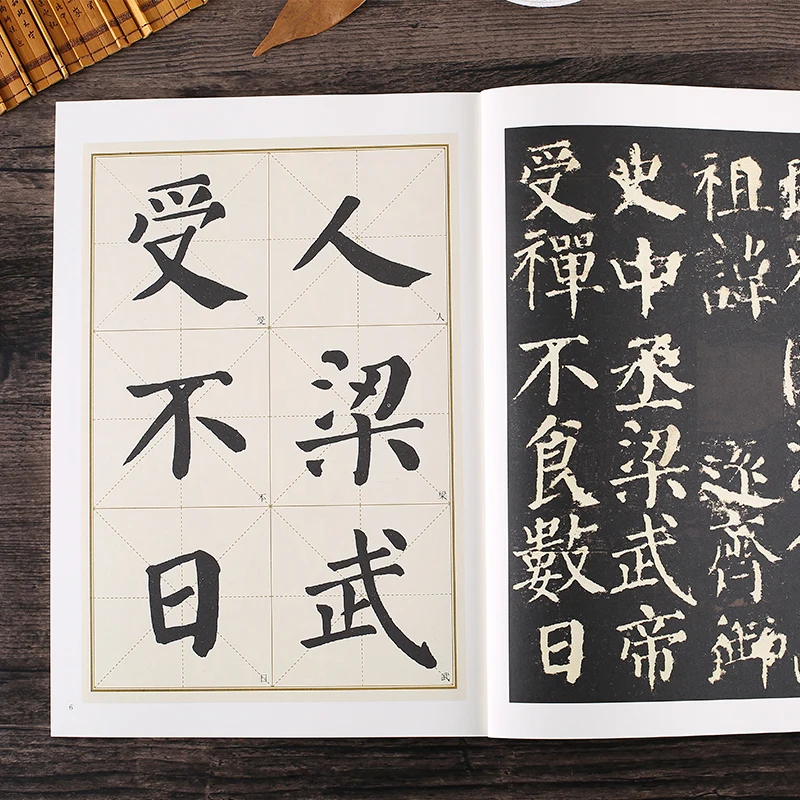 人梁武
受不日
人
梁
武
受
不
日
6
祖諱遠齊御
史中丞梁武帝
受禪不食數日